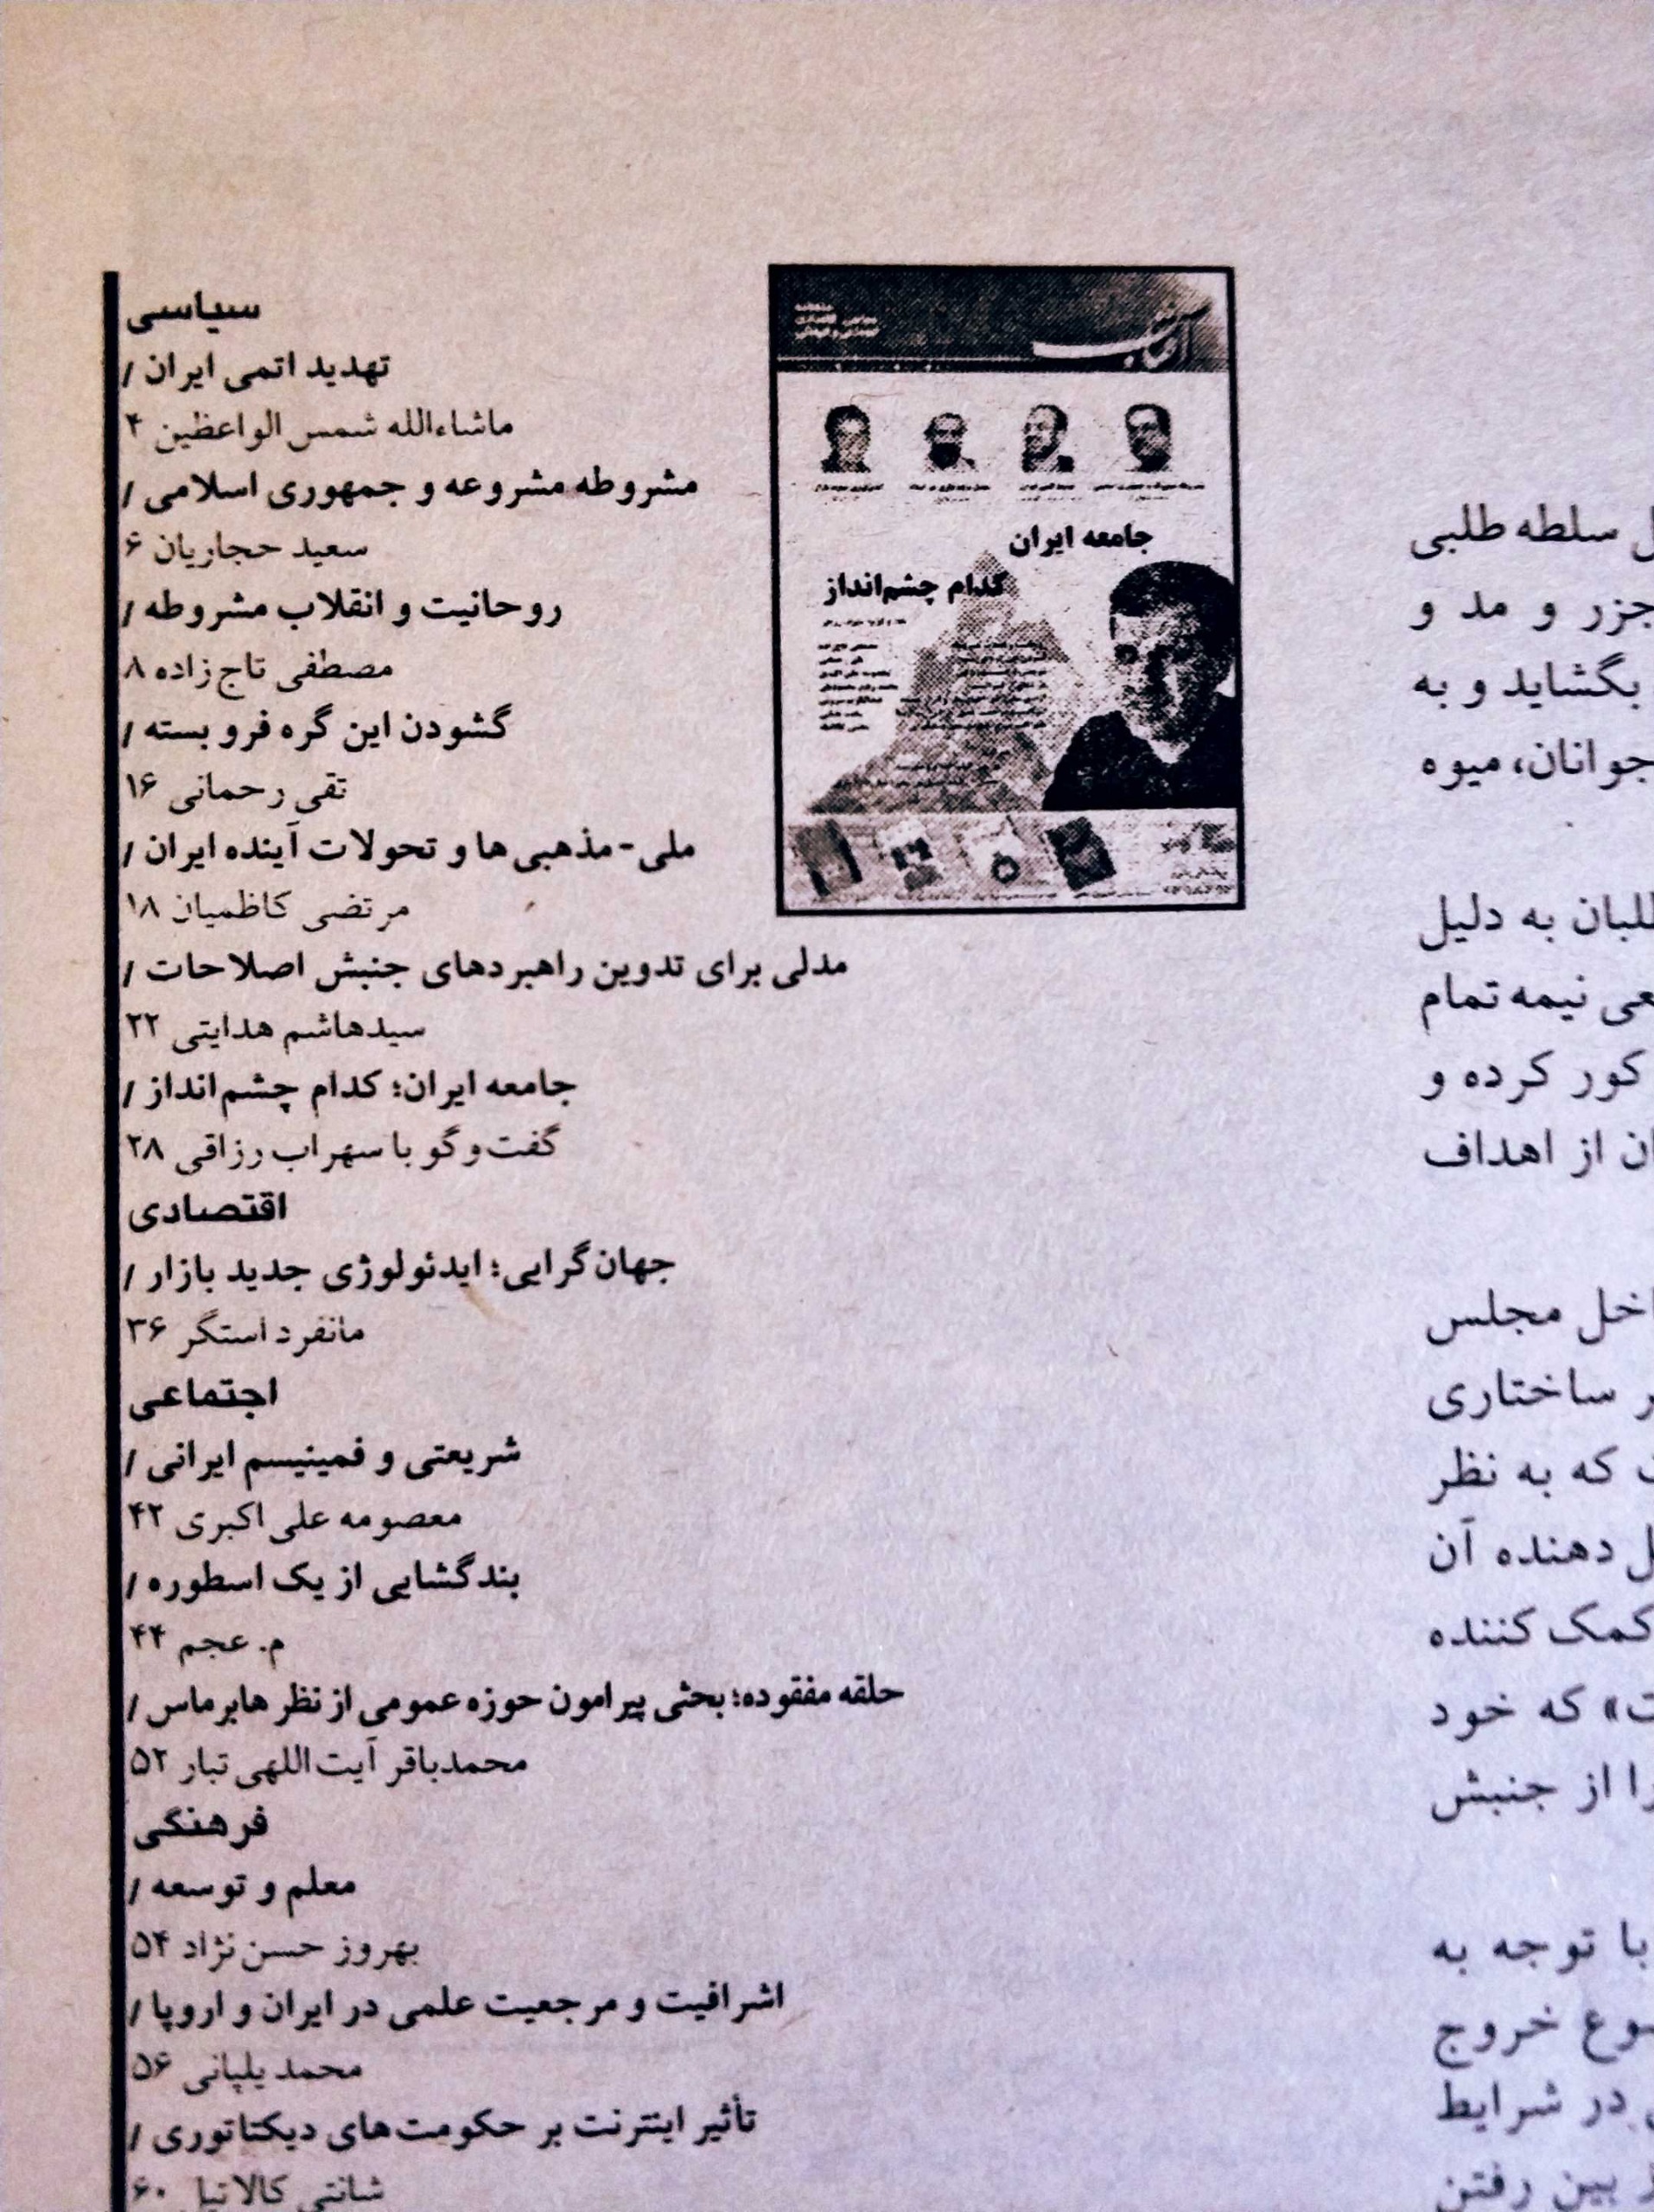 سیاسی
تهدید اتمی ایران /
ماشاءالله شمس الواعظین ۴
مشروطه مشروعه و جمهوری اسلامی /
سعید حجاریان ۶
روحانیت و انقلاب مشروطه /
مصطفی تاج زاده ۸
گشودن این گره فرو بسته /
تقی رحمانی ۱۶
ملی-مذهبی ها و تحولات آینده ایران /
مرتضی کاظمیان ۱۸
مدلی برای تدوین راهبردهای جنبش اصلاحات /
سیدهاشم هدایتی ۲۲
جامعه ایران؛ کدام چشم‌انداز /
گفت‌وگو با سهراب رزاقی ۲۸
اقتصادی
جهان‌گرایی؛ ایدئولوژی جدید بازار /
مانفرد استگر ۳۶
اجتماعی
شریعتی و فمینیسم ایرانی /
معصومه علی اکبری ۴۲
بندگشایی از یک اسطوره /
م. عجم ۴۴
حلقه مفقوده؛ بحثی پیرامون حوزه عمومی از نظر هابرماس /
محمدباقر آیت‌اللهی تبار ۵۲
فرهنگی
معلم و توسعه /
بهروز حسن‌نژاد ۵۴
اشرافیت و مرجعیت علمی در ایران و اروپا /
محمد یلپانی ۵۶
تأثیر اینترنت بر حکومت‌های دیکتاتوری /
شانتی کالاتیل ۶۰
آفتاب
جامعه ایران
کدام چشم‌انداز
سلطه طلبی
جزر و مد و
بگشاید و به
جوانان، میوه
به دلیل
نیمه تمام
کور کرده و
از اهداف
مجلس
ساختاری
که به نظر
دهنده آن
کمک کننده
که خود
را از جنبش
با توجه به
خروج
در شرایط
بین رفتن